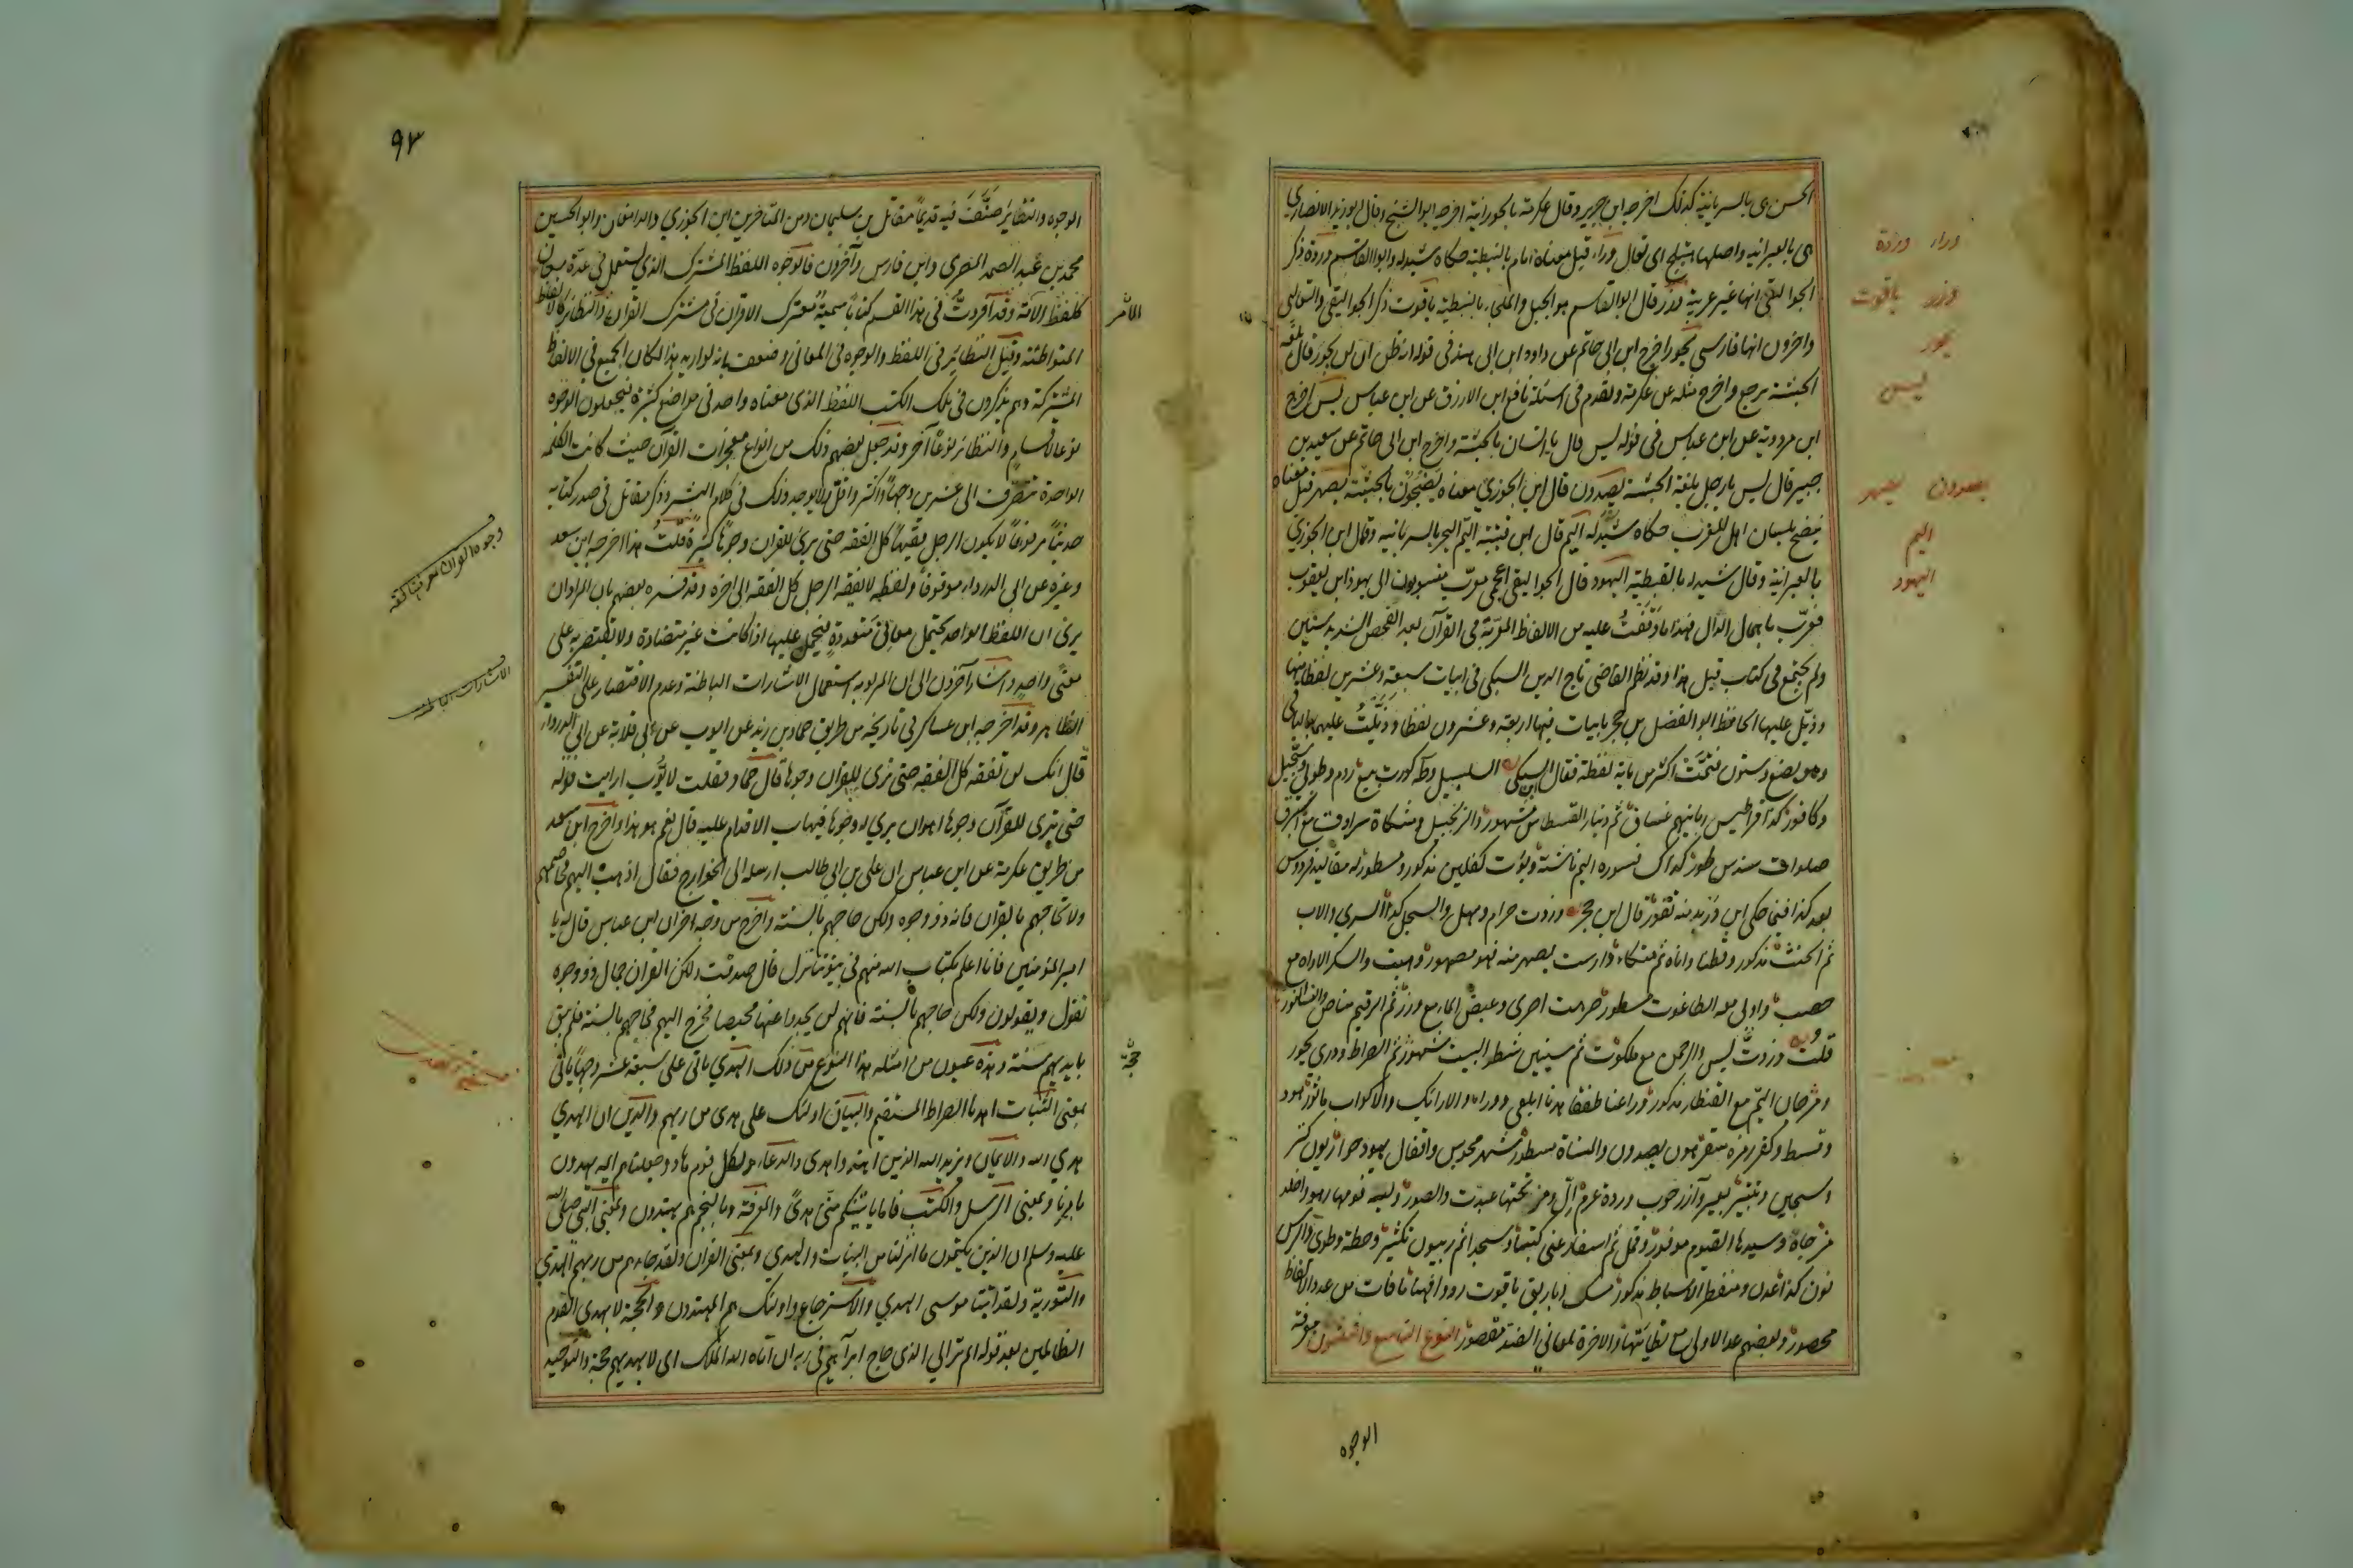 الحسن هى بالسريانية كذلك اخرجه ابن جرير وقال عكرمة بالحورانية اخرجه ابو الشيخ وقال ابو زيد الانصارى
هى بالعبرانية واصلها هيتلج اى تعال وراء قيل معناه امام بالنبطية حكاه شيدله وابو القاسم وردة ذكر
الجواليقى انها غير عربية وزر قال ابو القاسم هو الجبل والملجا بالنبطية ياقوت ذكر الجواليقى والثعالبى
واخرون انها فارسى يحور اخرج ابن ابى حاتم عن داود ابن ابى هند فى قوله انه ظن ان لن يحور قال بلغة
الحبشة يرجع واخرج مثله عن عكرمة وتقدم فى اسئلة نافع ابن الازرق عن ابن عباس يس اخرج
ابن مردويه عن ابن عباس فى قوله يس قال يا انسان بالحبشة واخرج ابن ابى حاتم عن سعيد بن
جبير قال يس يا رجل بلغة الحبشة يصدون قال ابن الجوزي معناه يضجون بالحبشة يصهر قيل معناه
ينضج بلسان اهل المغرب حكاه شيدله اليم قال ابن قتيبة اليم البحر بالسريانية وقال ابن الجوزي
بالعبرانية وقال شيدله بالقبطية اليهود قال الجواليقى اعجمى معرب منسوبون الى يهوذا ابن يعقوب
فعرب باهمال الدال فهذا ما وقفت عليه من الالفاظ المعربة فى القرآن بعد الفحص الشديد سنين
ولم يجتمع فى كتاب قبل هذا وقد نظم القاضى تاج الدين السبكى فى ابيات سبعة وعشرين لفظا منها
وذيل عليها الحافظ ابو الفضل بن حجر بابيات فيها اربعة وعشرون لفظا وذيلت عليهما بالباقى
وهو بضع وستون فتمت اكثر من ماية لفظة فقال ابن السبكى السلسبيل وطه كورت بيع روم وطوبى وسجيل
وكافور كذا قراطيس ربانيهم غساق ثم دينار القسطاس مشهور والزنجبيل ومشكاة سرادق مع استبرق
صلوات سندس طور كذاك قسورة اليم ناشئة ويؤت كفلين مذكور ومسطور له مقاليد فردوس
يعد كذا فيما حكى ابن دريد منه تنور قال ابن حجر وزدت حرام ومهل والسجل كذا السري والاب
ثم الجبت مذكور وقطنا واناه ثم متكاء دارست يصهر منه فهو مصهور وهيت والسكر الاواه مع
حصب واوبى معه الطاغوت مسطور صرهن اصرى وغيض الماء مع وزر ثم الرقيم مناص والسنا النور
قلت وزدت يس والرحمن مع ملكوت ثم سينين شطر البيت مشهور ثم الصراط ودرى يحور
ومرجان اليم مع القنطار مذكور وراعنا طفقا هدنا ابلعى ووراء والارائك والاكواب ماثور هود
وقسط وكفر رمزه سقر هون يصدون والمنساة مسطور شهر مجوس واقفال يهود حواريون كنز
وسجين وتتبير بعير وآزر حوب وردة عرم ال ومن تحتها عبدت والصور ولينة فومها رهو واخلد
مزجاة وسيدها القيوم موفور وقمل ثم اسفار عنى كتبا وسجدا ثم ربيون تكثير وحطة وطوى والرس
نون كذا عدن ومنفطر الاسباط مذكور مسك اباريق ياقوت رووا فهنا ما فات من عدد الالفاظ
محصور وبعضهم عد الاولى مع بطائنها والاخرة لمعانى الضد مقصور النوع التاسع والثلثون معرفة
الوجوه
وراء وردة
وزر ياقوت
يحور
ليس
يصدون يصهر
اليم
اليهود
٩٣
الوجوه والنظاير صنف فيه قديما مقاتل بن سليمان ومن المتاخرين ابن الجوزي والدامغان وابو الحسين
محمد بن عبد الصمد المصري وابن فارس وآخرون فالوجوه اللفظ المشترك الذي يستعمل فى عدة معان
كلفظ الامة وقد افردت فى هذا القسم كتابا سميته معترك الاقران فى مشترك القرآن والنظاير كالالفاظ
المتواطئة وقيل النظائر فى اللفظ والوجوه فى المعانى وضعف بانه لو اريد هذا لكان الجميع فى الالفاظ
المشتركة وهم يذكرون فى تلك الكتب اللفظ الذى معناه واحد فى مواضع كثيرة فيجعلون الوجوه
نوعا لاقسام والنظائر نوعا آخر وقد جعل بعضهم ذلك من انواع معجزات القرآن حيث كانت الكلمة
الواحدة تتصرف الى عشرين وجها واكثر واقل ولا يوجد ذلك فى كلام البشر وذكر مقاتل فى صدر كتابه
حديثا مرفوعا لا يكون الرجل فقيها كل الفقه حتى يرى للقران وجوها كثيرة قلت هذا اخرجه ابن سعد
وغيره عن ابى الدرداء موقوفا ولفظه لا يفقه الرجل كل الفقه الى اخره وقد فسره بعضهم بان المراد ان
يرى ان اللفظ الواحد يحتمل معانى متعددة فيحمل عليها اذا كانت غير متضادة ولا يقتصر به على
معنى واحد واشار آخرون الى ان المراد به استعمال الاشارات الباطنة وعدم الاقتصار على التفسير
الظاهر وقد اخرجه ابن عساكر فى تاريخه من طريق حماد بن زيد عن ايوب عن ابى قلابة عن ابى الدرداء
قال انك لن تفقه كل الفقه حتى ترى للقران وجوها قال حماد فقلت لايوب ارايت قوله
حتى ترى للقرآن وجوها اهو ان يرى له وجوها فيهاب الاقدام عليه قال نعم هو هذا واخرج ابن سعد
من طريق عكرمة عن ابن عباس ان على بن ابى طالب ارسله الى الخوارج فقال اذهب اليهم فخاصمهم
ولا تحاجهم بالقران فانه ذو وجوه ولكن حاجهم بالسنة واخرج من وجه اخر ان ابن عباس قال له يا
امير المؤمنين فانا اعلم بكتاب الله منهم فى بيوتنا نزل قال صدقت ولكن القران حمال ذو وجوه
تقول ويقولون ولكن حاجهم بالسنة فانهم لن يجدوا عنها محيصا فخرج اليهم فحاجهم بالسنة فلم يبق
بايديهم حجة وهذه عيون من امثلة هذا النوع من ذلك الهدي ياتى على سبعة عشر وجها ياتى
بمعنى الثبات اهدنا الصراط المستقيم والبيان اولئك على هدى من ربهم والدين ان الهدي
هدي الله والايمان ويزيد الله الذين اهتدوا هدى والدعاء ولكل قوم هاد وجعلناهم ايمة يهدون
بامرنا وبمعنى الرسل والكتب فاما ياتينكم منى هدى والمعرفة وبالنجم هم يهتدون وبمعنى النبى صلى الله
عليه وسلم ان الذين يكتمون ما انزلنا من البينات والهدي وبمعنى القران ولقد جاءهم من ربهم الهدي
والتورية ولقد اتينا موسى الهدي والاسترجاع واولئك هم المهتدون والحجة لا يهدى القوم
الظالمين بعد قوله الم تر الى الذى حاج ابراهيم فى ربه ان آتاه الله الملك اى لا يهديهم حجة والتوحيد
حجة